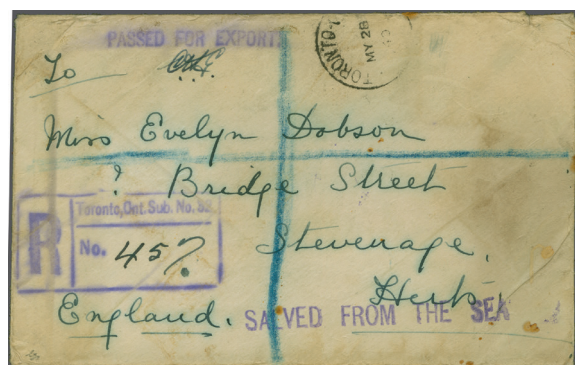 PASSED FOR EXPORT.
TORONTO
MY 28
To
Miss Evelyn Dobson
? Bridge Street
Stevenage,
Herts,
England.
R
Toronto, Ont. Sub. No. 52
No. 457
SALVED FROM THE SEA